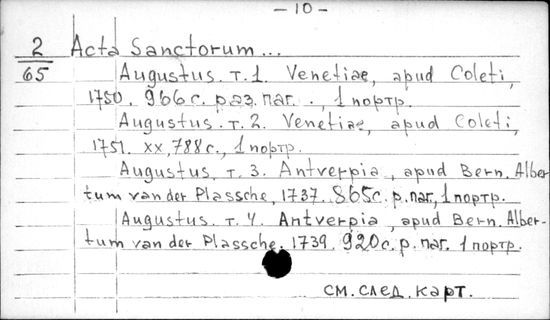 – 10 –
2 Acta Sanctorum ...
65 Augustus. т. 1. Venetiae, apud Coleti,
1750. 966 с. раз. паг. ., 1 портр.
Augustus. т. 2. Venetiae, apud Coleti,
1751. xx, 788 с., 1 портр.
Augustus, т. 3. Antverpia, apud Bern. Alber-
tum van der Plassche, 1737. 865 с. р. паг., 1 портр.
Augustus. т. 4. Antverpia, apud Bern. Alber-
tum van der Plassche. 1739. 920 с. р. паг. 1 портр.
см. след. карт.